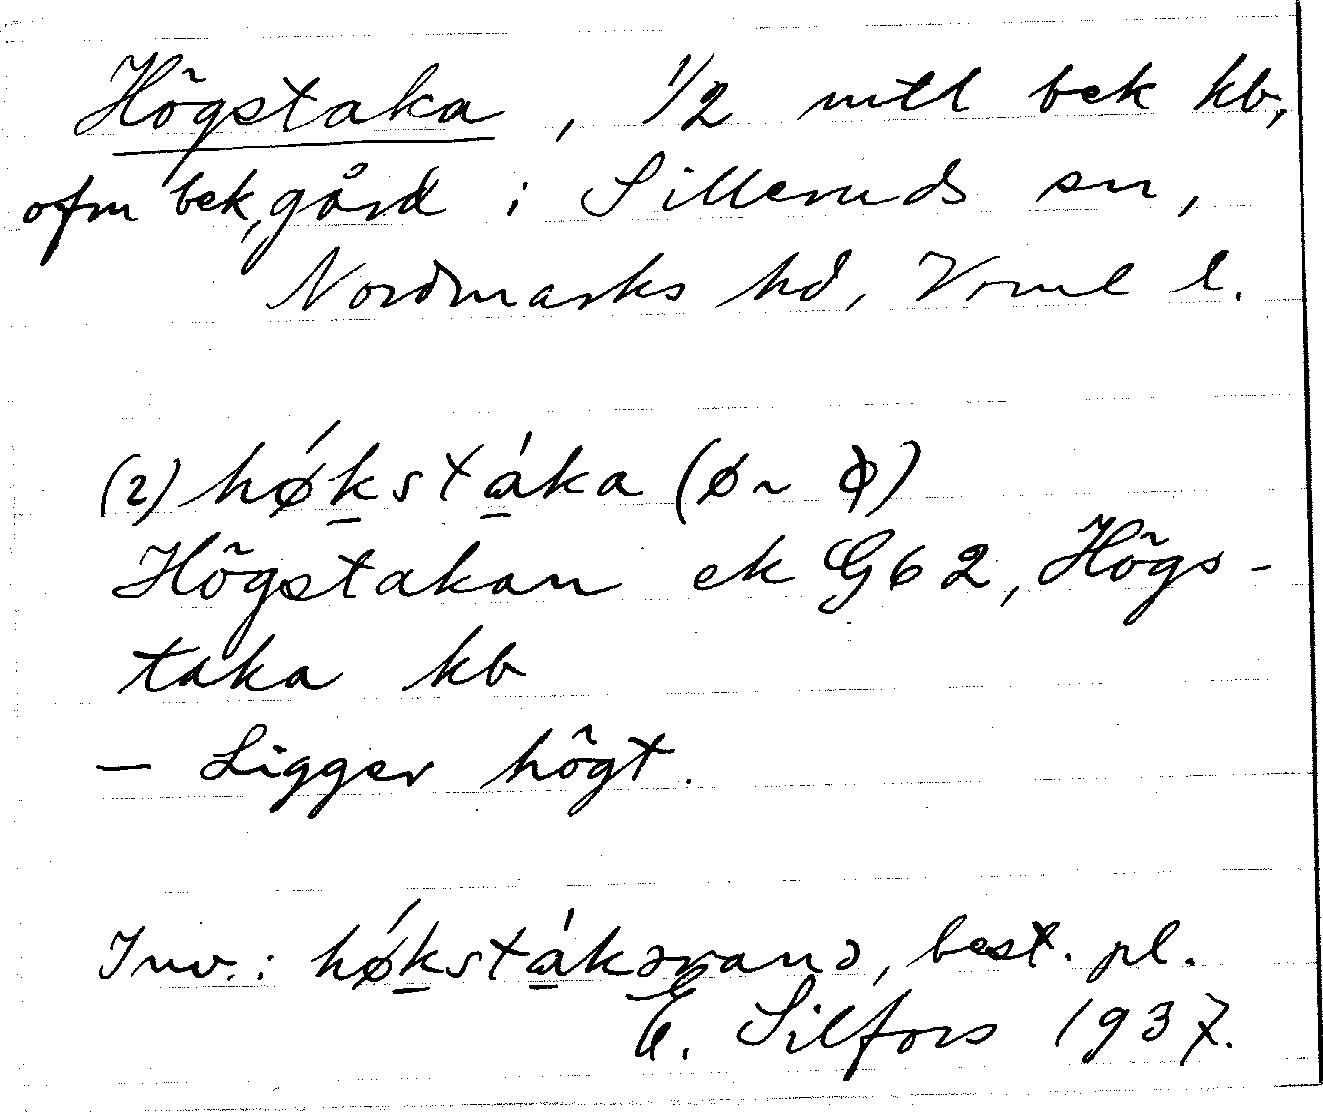 Högstaka, 1/2 mtl bek kb,
ofm bek, gård i Silleruds sn,
Nordmarks hd, Vrml l.
(2) hǿk̲stá̲ka (ø ~ ϕ)
Högstakan ek G62, Högs-
taka kb
— Ligger högt.
Inv.: hǿk̲stá̲kəranə, best. pl.
E. Silfors 1937.